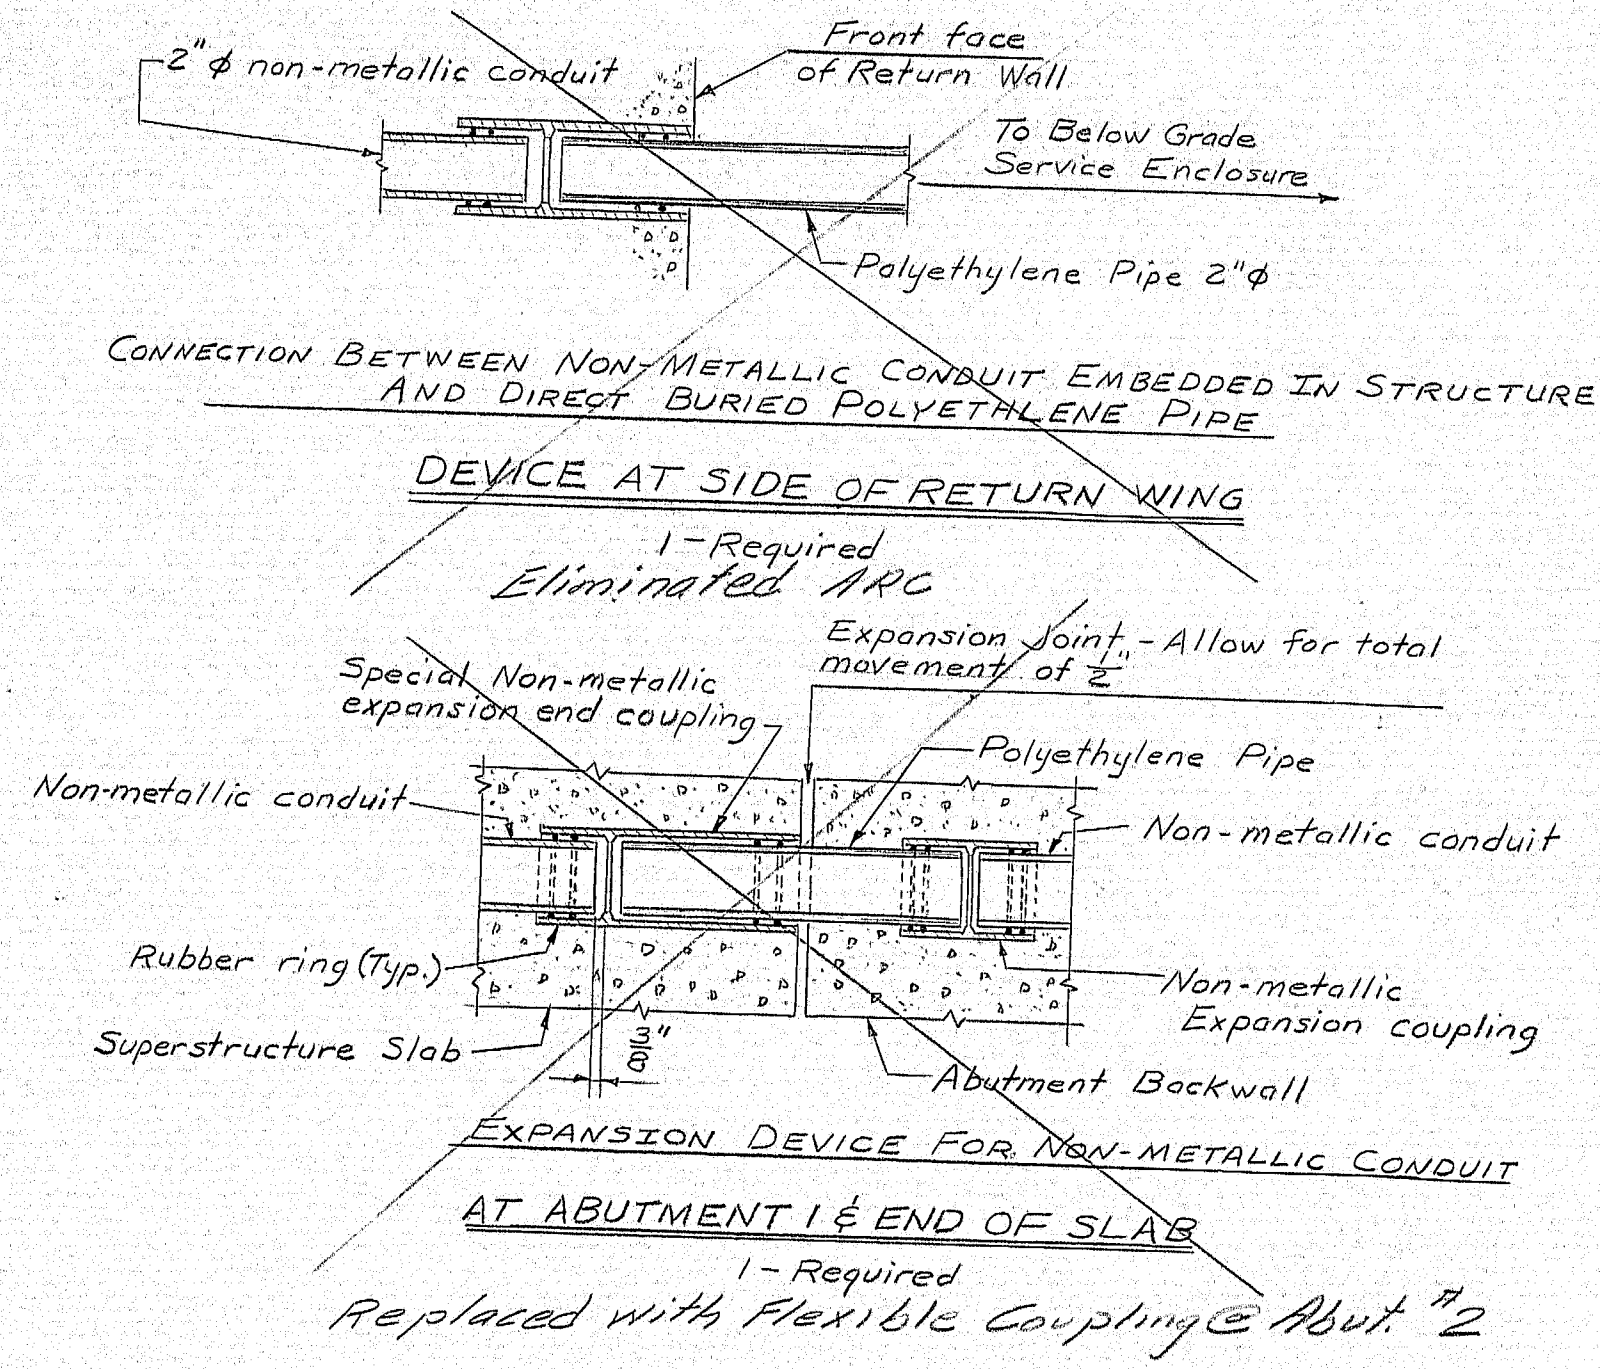 2" ϕ non-metallic conduit
Front face
of Return Wall
To Below Grade
Service Enclosure
Polyethylene Pipe 2"ϕ
CONNECTION BETWEEN NON-METALLIC CONDUIT EMBEDDED IN STRUCTURE
AND DIRECT BURIED POLYETHLENE PIPE
DEVICE AT SIDE OF RETURN WING
1-Required
Eliminated ARC
Expansion Joint - Allow for total
movement of 1/2"
Special Non-metallic
expansion end coupling
Polyethylene Pipe
Non-metallic conduit
Non-metallic conduit
Rubber ring (Typ.)
Non-metallic
Expansion coupling
Superstructure Slab
3/8"
Abutment Backwall
EXPANSION DEVICE FOR NON-METALLIC CONDUIT
AT ABUTMENT 1 & END OF SLAB
1-Required
Replaced with Flexible Coupling @ Abut. #2